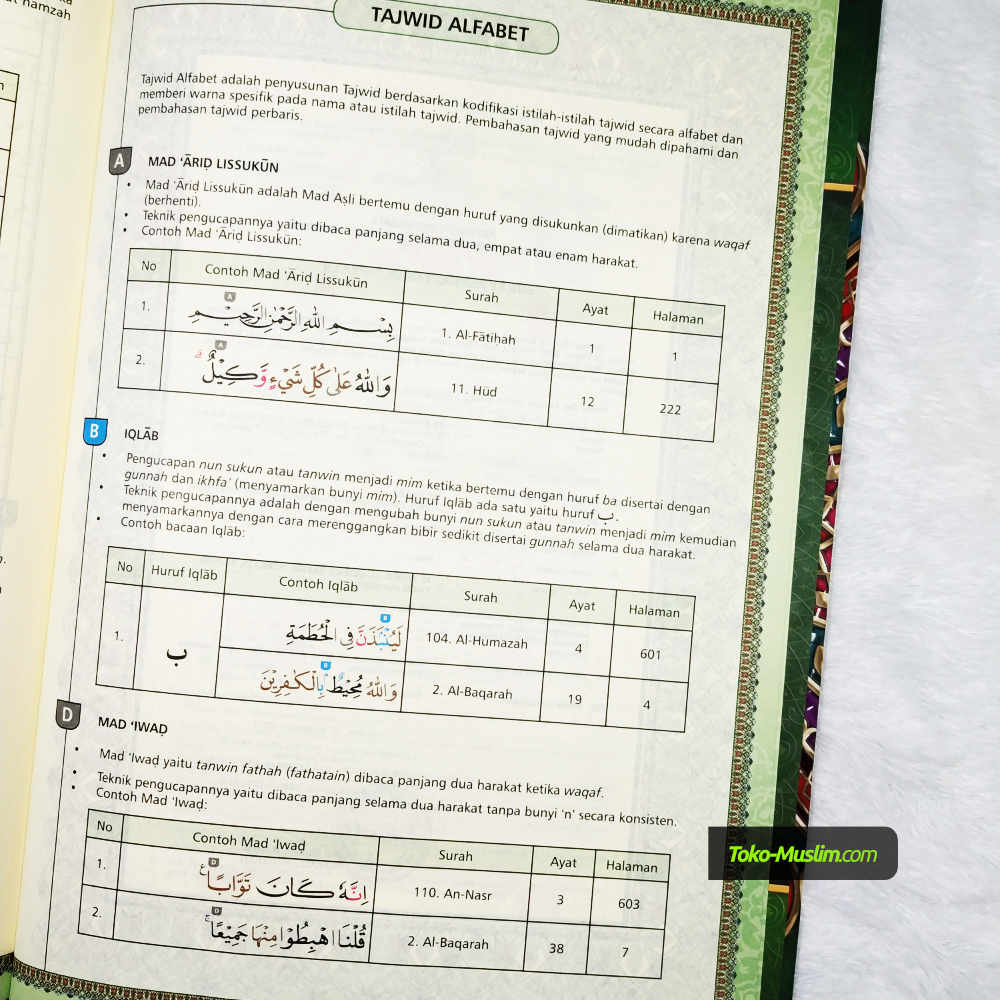 hamzah
TAJWID ALFABET
Tajwid Alfabet adalah penyusunan Tajwid berdasarkan kodifikasi istilah-istilah tajwid secara alfabet dan
memberi warna spesifik pada nama atau istilah tajwid. Pembahasan tajwid yang mudah dipahami dan
pembahasan tajwid perbaris.
A MAD ‘ĀRIḌ LISSUKŪN
• Mad ‘Āriḍ Lissukūn adalah Mad Aṣli bertemu dengan huruf yang disukunkan (dimatikan) karena waqaf
(berhenti).
• Teknik pengucapannya yaitu dibaca panjang selama dua, empat atau enam harakat.
• Contoh Mad ‘Āriḍ Lissukūn:
No Contoh Mad ‘Āriḍ Lissukūn Surah Ayat Halaman
A
1. بِسْمِ اللّٰهِ الرَّحْمٰنِ الرَّحِيْمِ 1. Al-Fātiḥah 1 1
A
2. وَاللّٰهُ عَلٰى كُلِّ شَيْءٍ وَّكِيْلٌ 11. Hūd 12 222
B IQLĀB
• Pengucapan nun sukun atau tanwin menjadi mim ketika bertemu dengan huruf ba disertai dengan
gunnah dan ikhfa’ (menyamarkan bunyi mim). Huruf Iqlāb ada satu yaitu huruf ب.
• Teknik pengucapannya adalah dengan mengubah bunyi nun sukun atau tanwin menjadi mim kemudian
menyamarkannya dengan cara merenggangkan bibir sedikit disertai gunnah selama dua harakat.
• Contoh bacaan Iqlāb:
No Huruf Iqlāb Contoh Iqlāb Surah Ayat Halaman
B
1. ب لَيُنْۢبَذَنَّ فِى الْحُطَمَةِ 104. Al-Humazah 4 601
B
وَاللّٰهُ مُحِيْطٌۢ بِالْكٰفِرِيْنَ 2. Al-Baqarah 19 4
D MAD ‘IWAḌ
• Mad ‘Iwaḍ yaitu tanwin fathah (fathatain) dibaca panjang dua harakat ketika waqaf.
• Teknik pengucapannya yaitu dibaca panjang selama dua harakat tanpa bunyi ‘n’ secara konsisten.
• Contoh Mad ‘Iwaḍ:
No Contoh Mad ‘Iwaḍ Surah Ayat Halaman
D
1. اِنَّهٗ كَانَ تَوَّابًا 110. An-Nasr 3 603
D
2. قُلْنَا اهْبِطُوْا مِنْهَا جَمِيْعًا 2. Al-Baqarah 38 7
Toko-Muslim.com